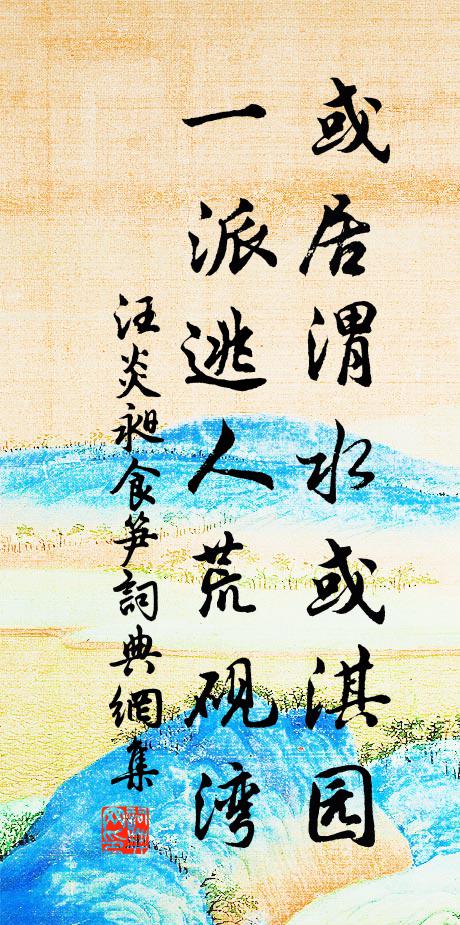 或居渭水或淇园
一派逃人荒砚湾
汪炎昶食笋词典網集